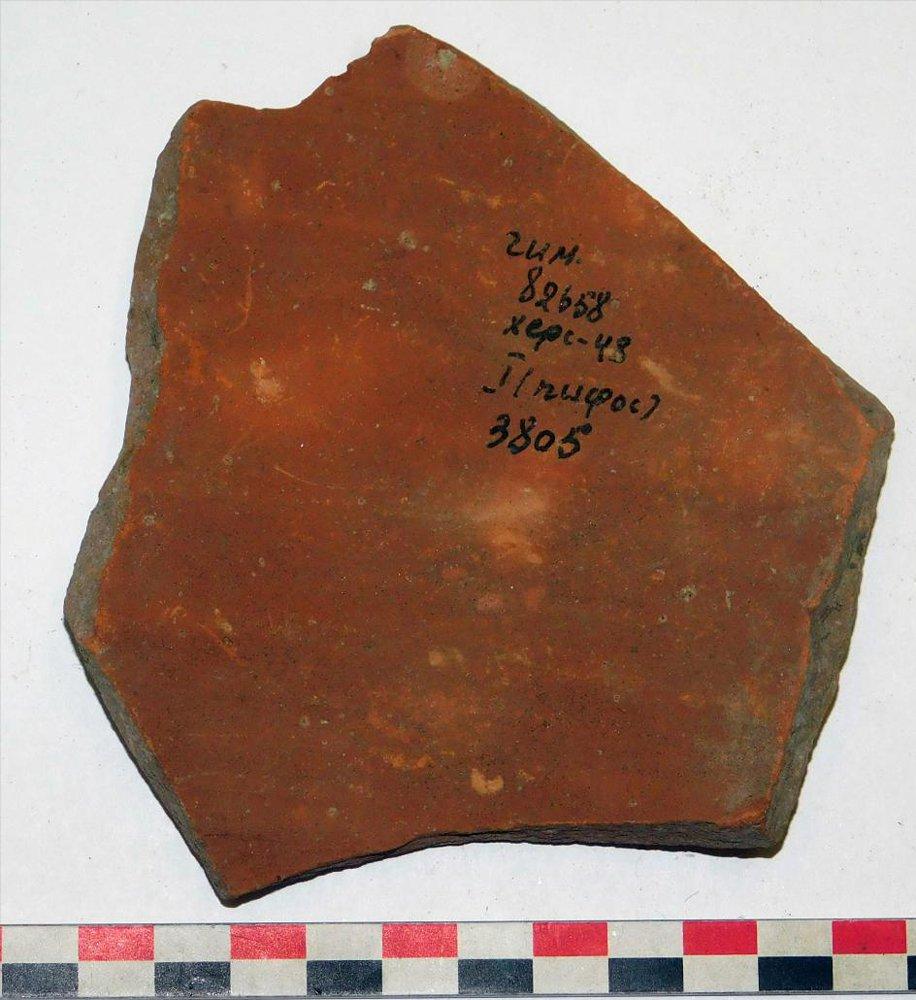 гим.
82658
херс-49
I (пифос)
3805